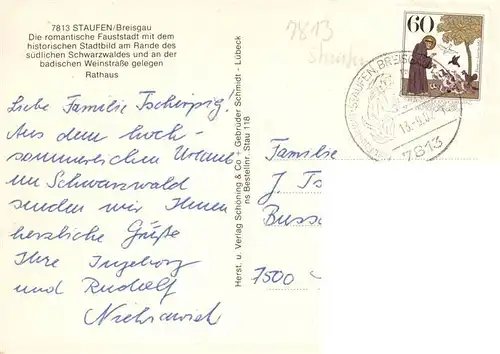 7813 STAUFEN/Breisgau
Die romantische Fauststadt mit dem
historischen Stadtbild am Rande des
südlichen Schwarzwaldes und an der
badischen Weinstraße gelegen
Rathaus
Liebe Familie Tschirpig!
Aus dem hoch-
sommerlichen Urlaub
im Schwarzwald
senden wir Ihnen
herzliche Grüße
Ihre Ingeborg
und Rudolf
Herst. u. Verlag Schöning & Co - Gebrüder Schmidt - Lübeck
ns Bestellnr. Stau 118
7813
Staufen
60
STAUFEN, BREISGAU
7813
Familie
J. Ts
Bussa
7500